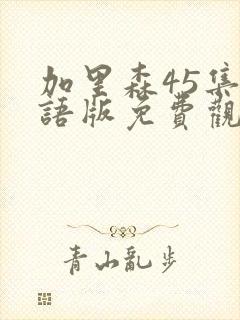 加里森45集
語版免費觀
青山亂步